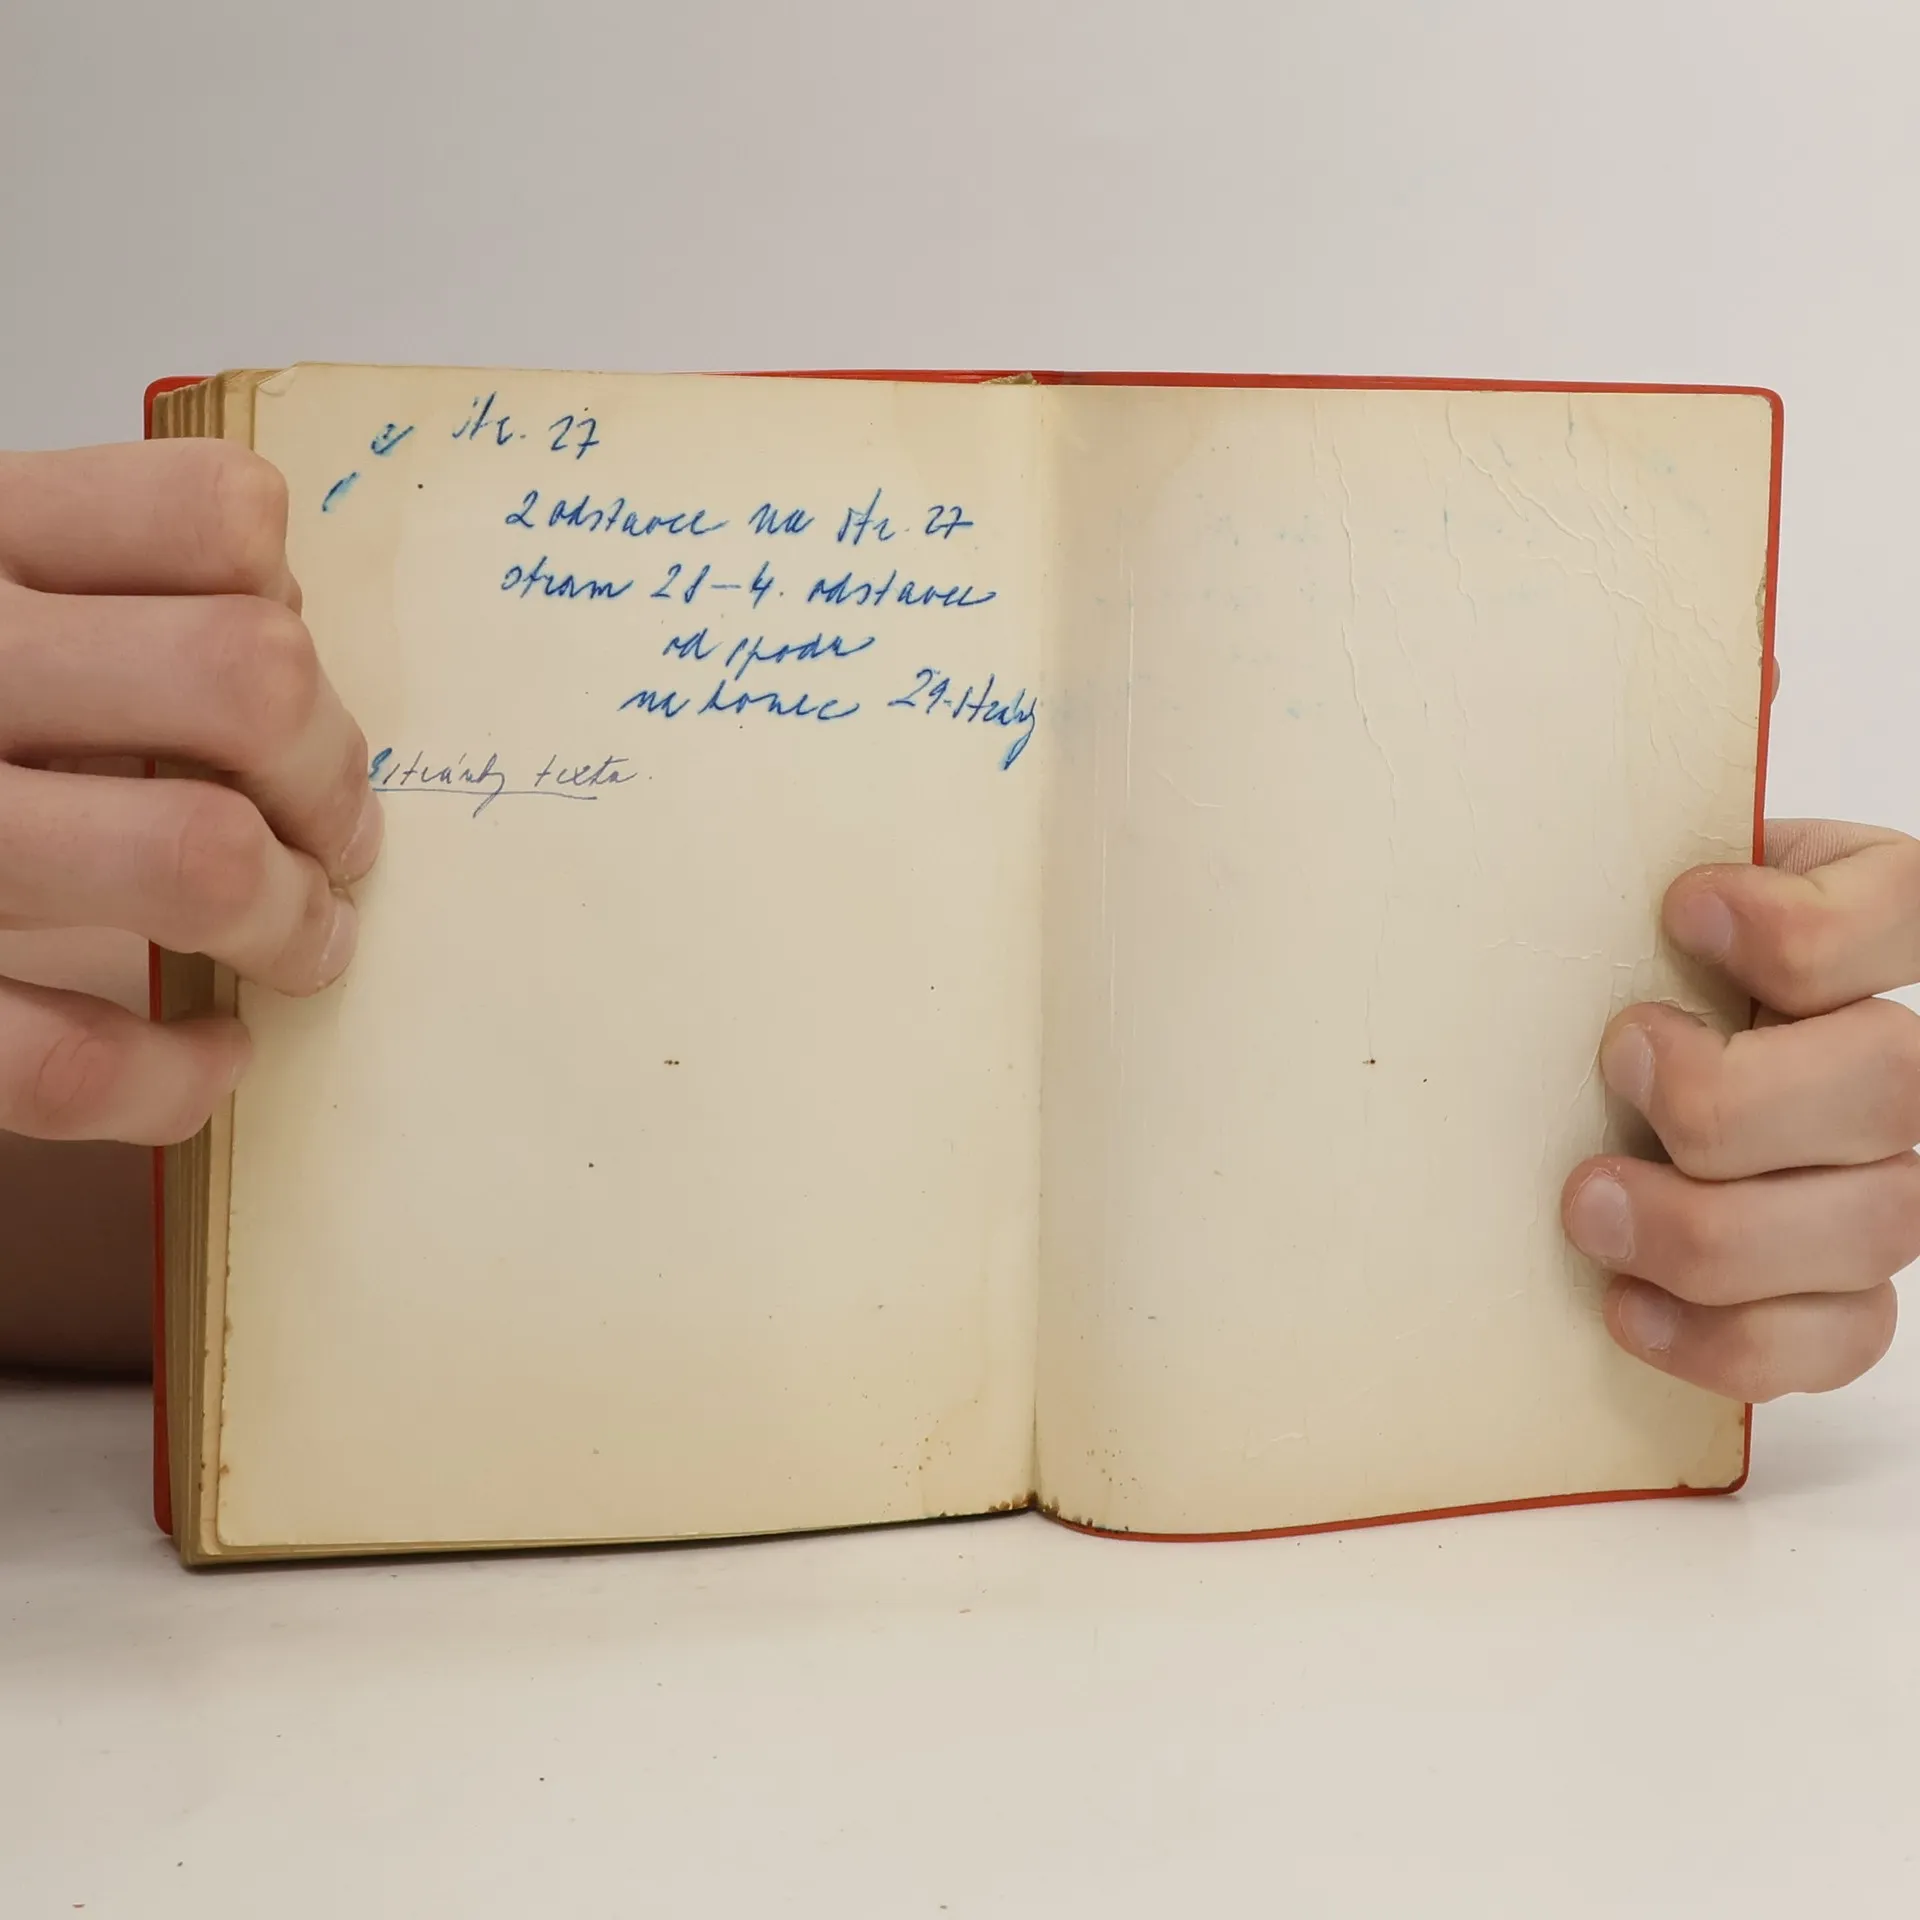 str. 27
2 odstavce na str. 27
stran 28 – 4. odstavce
od spodu
na konec 29. stránky
3 stránky textu.